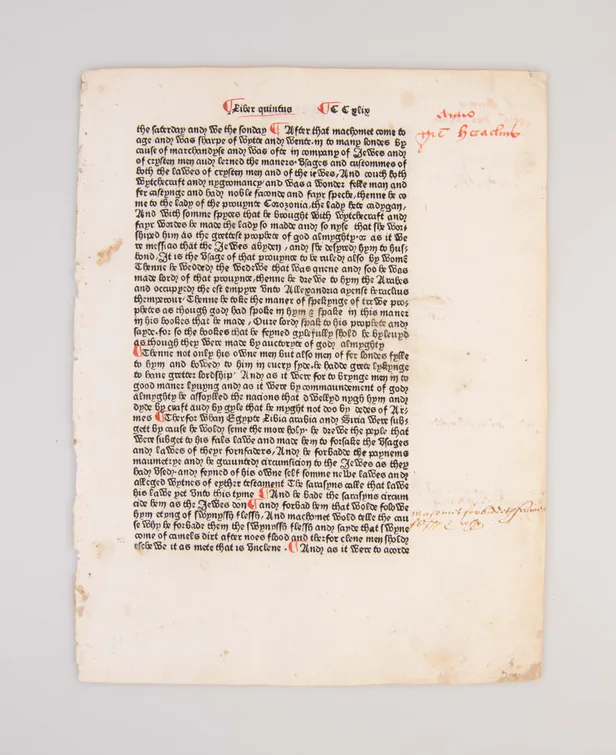 ¶Liber quintus ¶CC xlix
Anno
the saterday and we the sonday ¶ After that machomet come to
age and was sharpe of wytte and wente in to many londes by
cause of marchandyse and was ofte in company of Jewes and
of crysten men and lerned the maners vsages and custommes of
both the lawes of crysten men and of the iewes, And couth both
wytchecraft and nygromancy and was a wonder felle man and
fer castynge and had noble faconde and fayr speche, thenne he co
me to the lady of the prouynce Corozonia, the lady hete cadygan,
And with somme spyces that he brought with wytchecraft and
fayr wordes he made the lady so madde and so nyse that she wor
shiped him as the grettest prophete of god almyghty or as it we
re messiao that the Jewes abyden, and she desyred hym to hus
bond, It is the vsage of that prouynce to be ruled also by wome
Thenne he wedded the wedewe that was quene and soo he was
made lord of that prouynce, thenne he drewe to hym the Arabes
and occupyed the est empyre vnto Allexandria ayenst heraclius
themperour, Thenne he toke the maner of spekynge of trewe pro
phetes as though god had spoke in hym & spake in this maner
in his bookes that he made, Oure lord spak to his prophete and
sayde, for so the bookes that he feyned gylefully shold be byleuyd
as though they were made by auctoryte of god almyghty
¶Thenne not only his owne men but also men of fer londes fylle
to hym and bowed to him in euery syde, he hadde grete lykynge
to haue gretter lordship And as it were for to brynge men in to
good maner lyuyng and as it were by commaundement of god
almyghty he assoylled the nacions that dwellyd nygh hym and
dyde by craft and by gyle that he myght not doo by dedes of Ar
mes ¶Therfor whan Egypte Libia arabia and Siria were sub
gett by cause he wold seme the more holy he drewe the peple that
were subget to his fals lawe and made hem to forsake the vsages
and lawes of theyr fornfaders, And he forbadde the paynems
maumetrye and he graunted circumsicion to the Jewes as they
had vsed and feyned of his owne self somme newe lawes and
alleged wytnes of eyther testament The sarasyns calle that lawe
his lawe yet vnto this tyme ¶And he bade the sarasyns circum
cide hem as the Jewes don ¶and forbad hem that wolde folowe
hym etyng of swynyssh flessh, And machomet wold telle the cau
se why he forbade them the swynyssh flessh and sayde that swyne
come of camels dirt after noes flood and therfor clene men shold
eschewe it as mete that is vnclene ¶And as it were to acorde